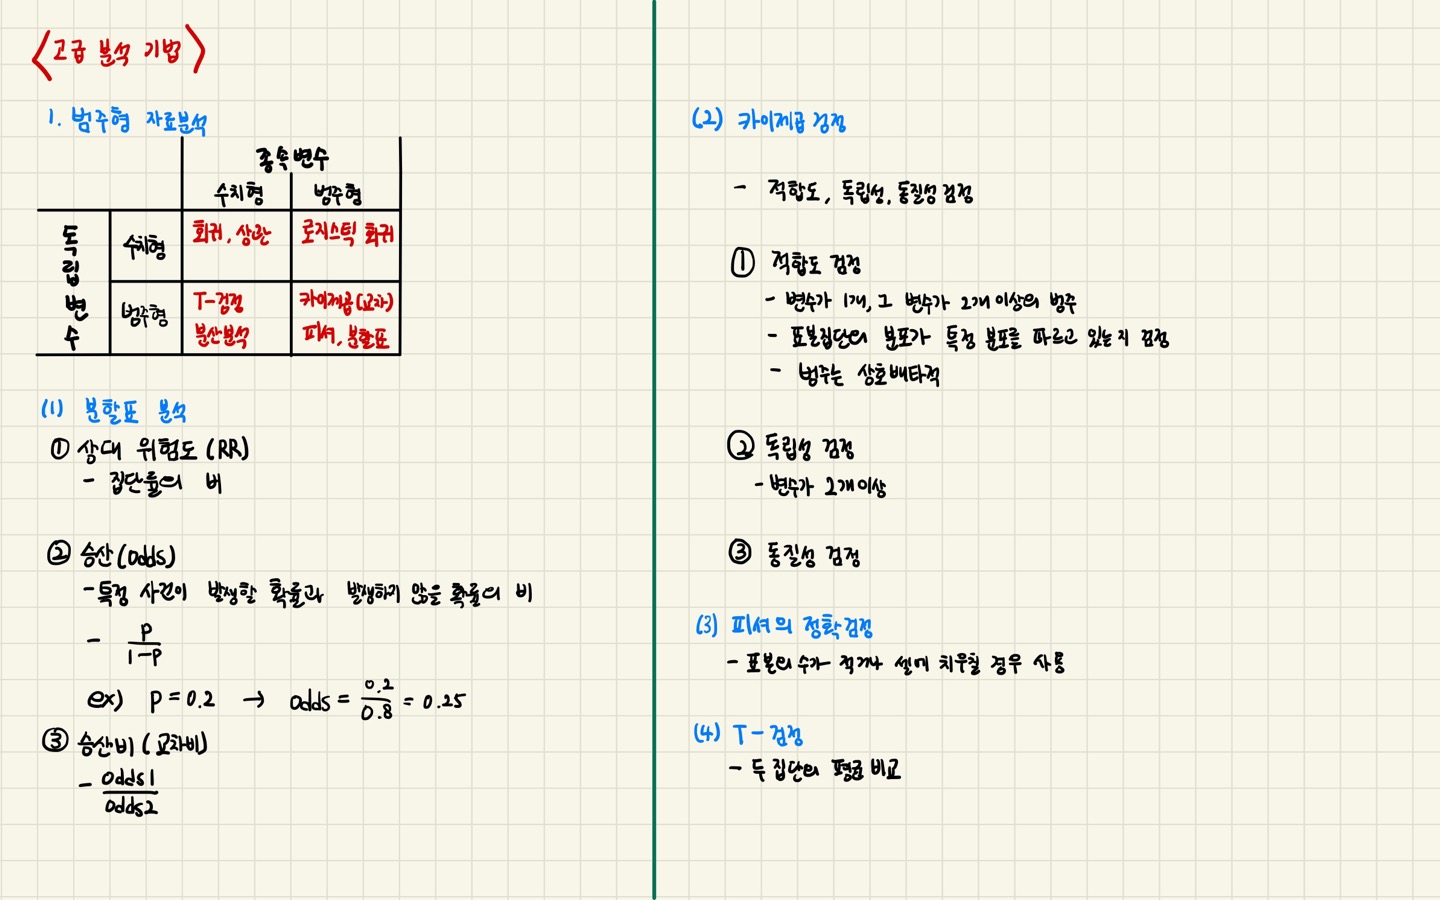 <고급 분석 기법>
1. 범주형 자료분석
종속변수
수치형 범주형
독립변수
수치형 회귀, 상관 로지스틱 회귀
범주형 T-검정 카이제곱(교차)
분산분석 피셔, 분할표
(1) 분할표 분석
① 상대 위험도 (RR)
- 집단률의 비
② 승산(odds)
- 특정 사건이 발생할 확률과 발생하지 않을 확률의 비
- p
1-p
ex) p = 0.2 → odds = 0.2/0.8 = 0.25
③ 승산비 (교차비)
- odds1
odds2
(2) 카이제곱 검정
- 적합도, 독립성, 동질성 검정
① 적합도 검정
- 변수가 1개, 그 변수가 2개 이상의 범주
- 표본집단의 분포가 특정 분포를 따르고 있는지 검정
- 범주는 상호배타적
② 독립성 검정
- 변수가 2개이상
③ 동질성 검정
(3) 피셔의 정확검정
- 표본의 수가 적거나 셀에 치우칠 경우 사용
(4) T-검정
- 두 집단의 평균 비교